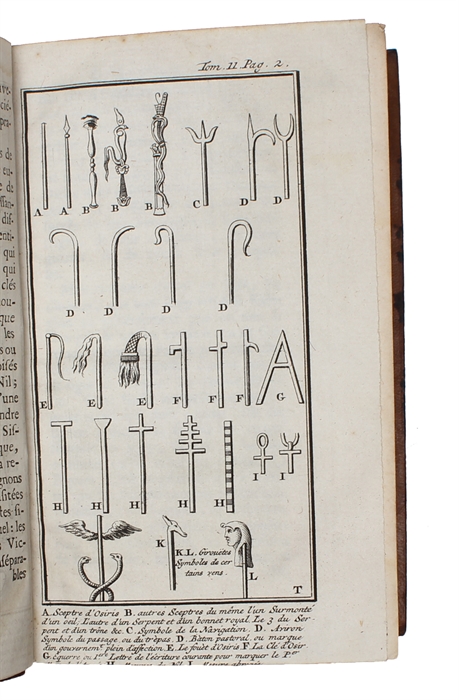 Tom. II. Pag. 2.
A A B B B C D D
D D D D
E E E F F F G
H H H H H I I
K
K.L. Girouëtes
Symboles de cer
tains vens.
L
T
A. Sceptre d'Osiris B. autres Sceptres du même l'un Surmonté
d'un oeil. L'autre d'un Serpent et d'un bonnet royal. Le 3 du Ser
pent et d'un trône &c. C. Symbole de la Navigation. D. Aviron
Symbole du passage, ou du trépas. D. Bâton pastoral, ou marque
d'un gouvernemt plein d'affection E. Le fouët d'Osiris F. La Clé d'Osir
G. équerre ou 1ere Lettre de l'écriture courante pour marquer le Per
ve-
cié-
pra-
s de
eu-
e de
ffan-
dif-
enti-
qui
qui
clés
ou-
que
les
s ou
oisés
Nil;
l'une
endre
Sif-
que,
a re-
gnons
usitées
tes si-
nel: les
s Vic-
ables